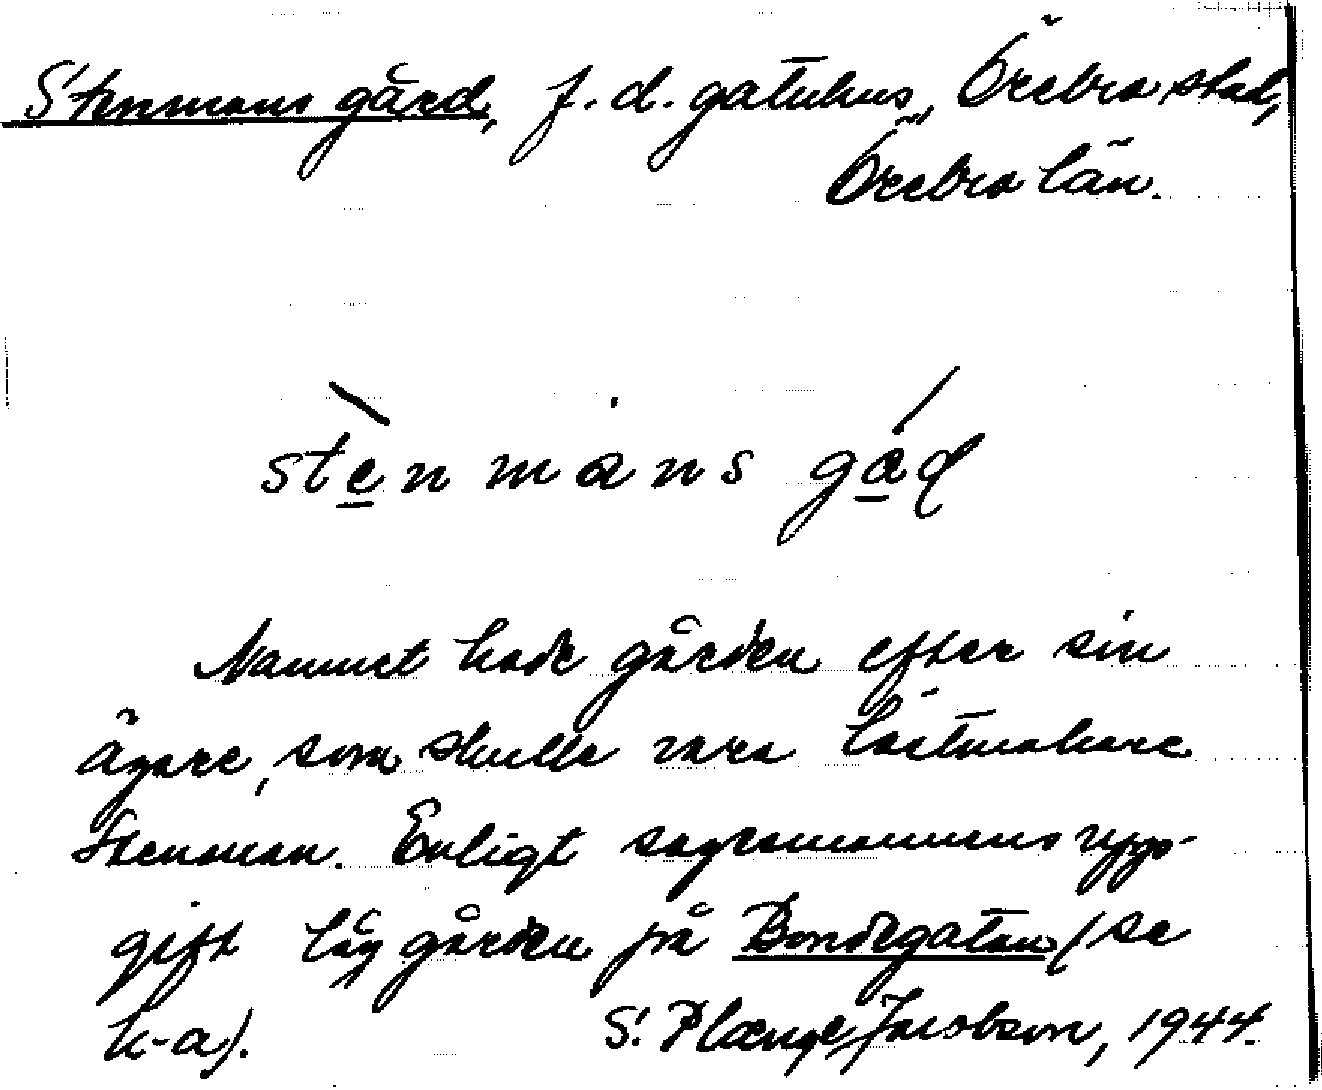 Stenmans gård, f. d. gatuhus, Örebro stad,
Örebro län.
stè̲nmȧns gá̲d
Namnet hade gården efter sin
ägare, som skulle vara lästmakare
Stenman. Enligt sagesmannens upp-
gift låg gården på Bondegatan (se
k-a).
S. Plænge Jacobson, 1944.